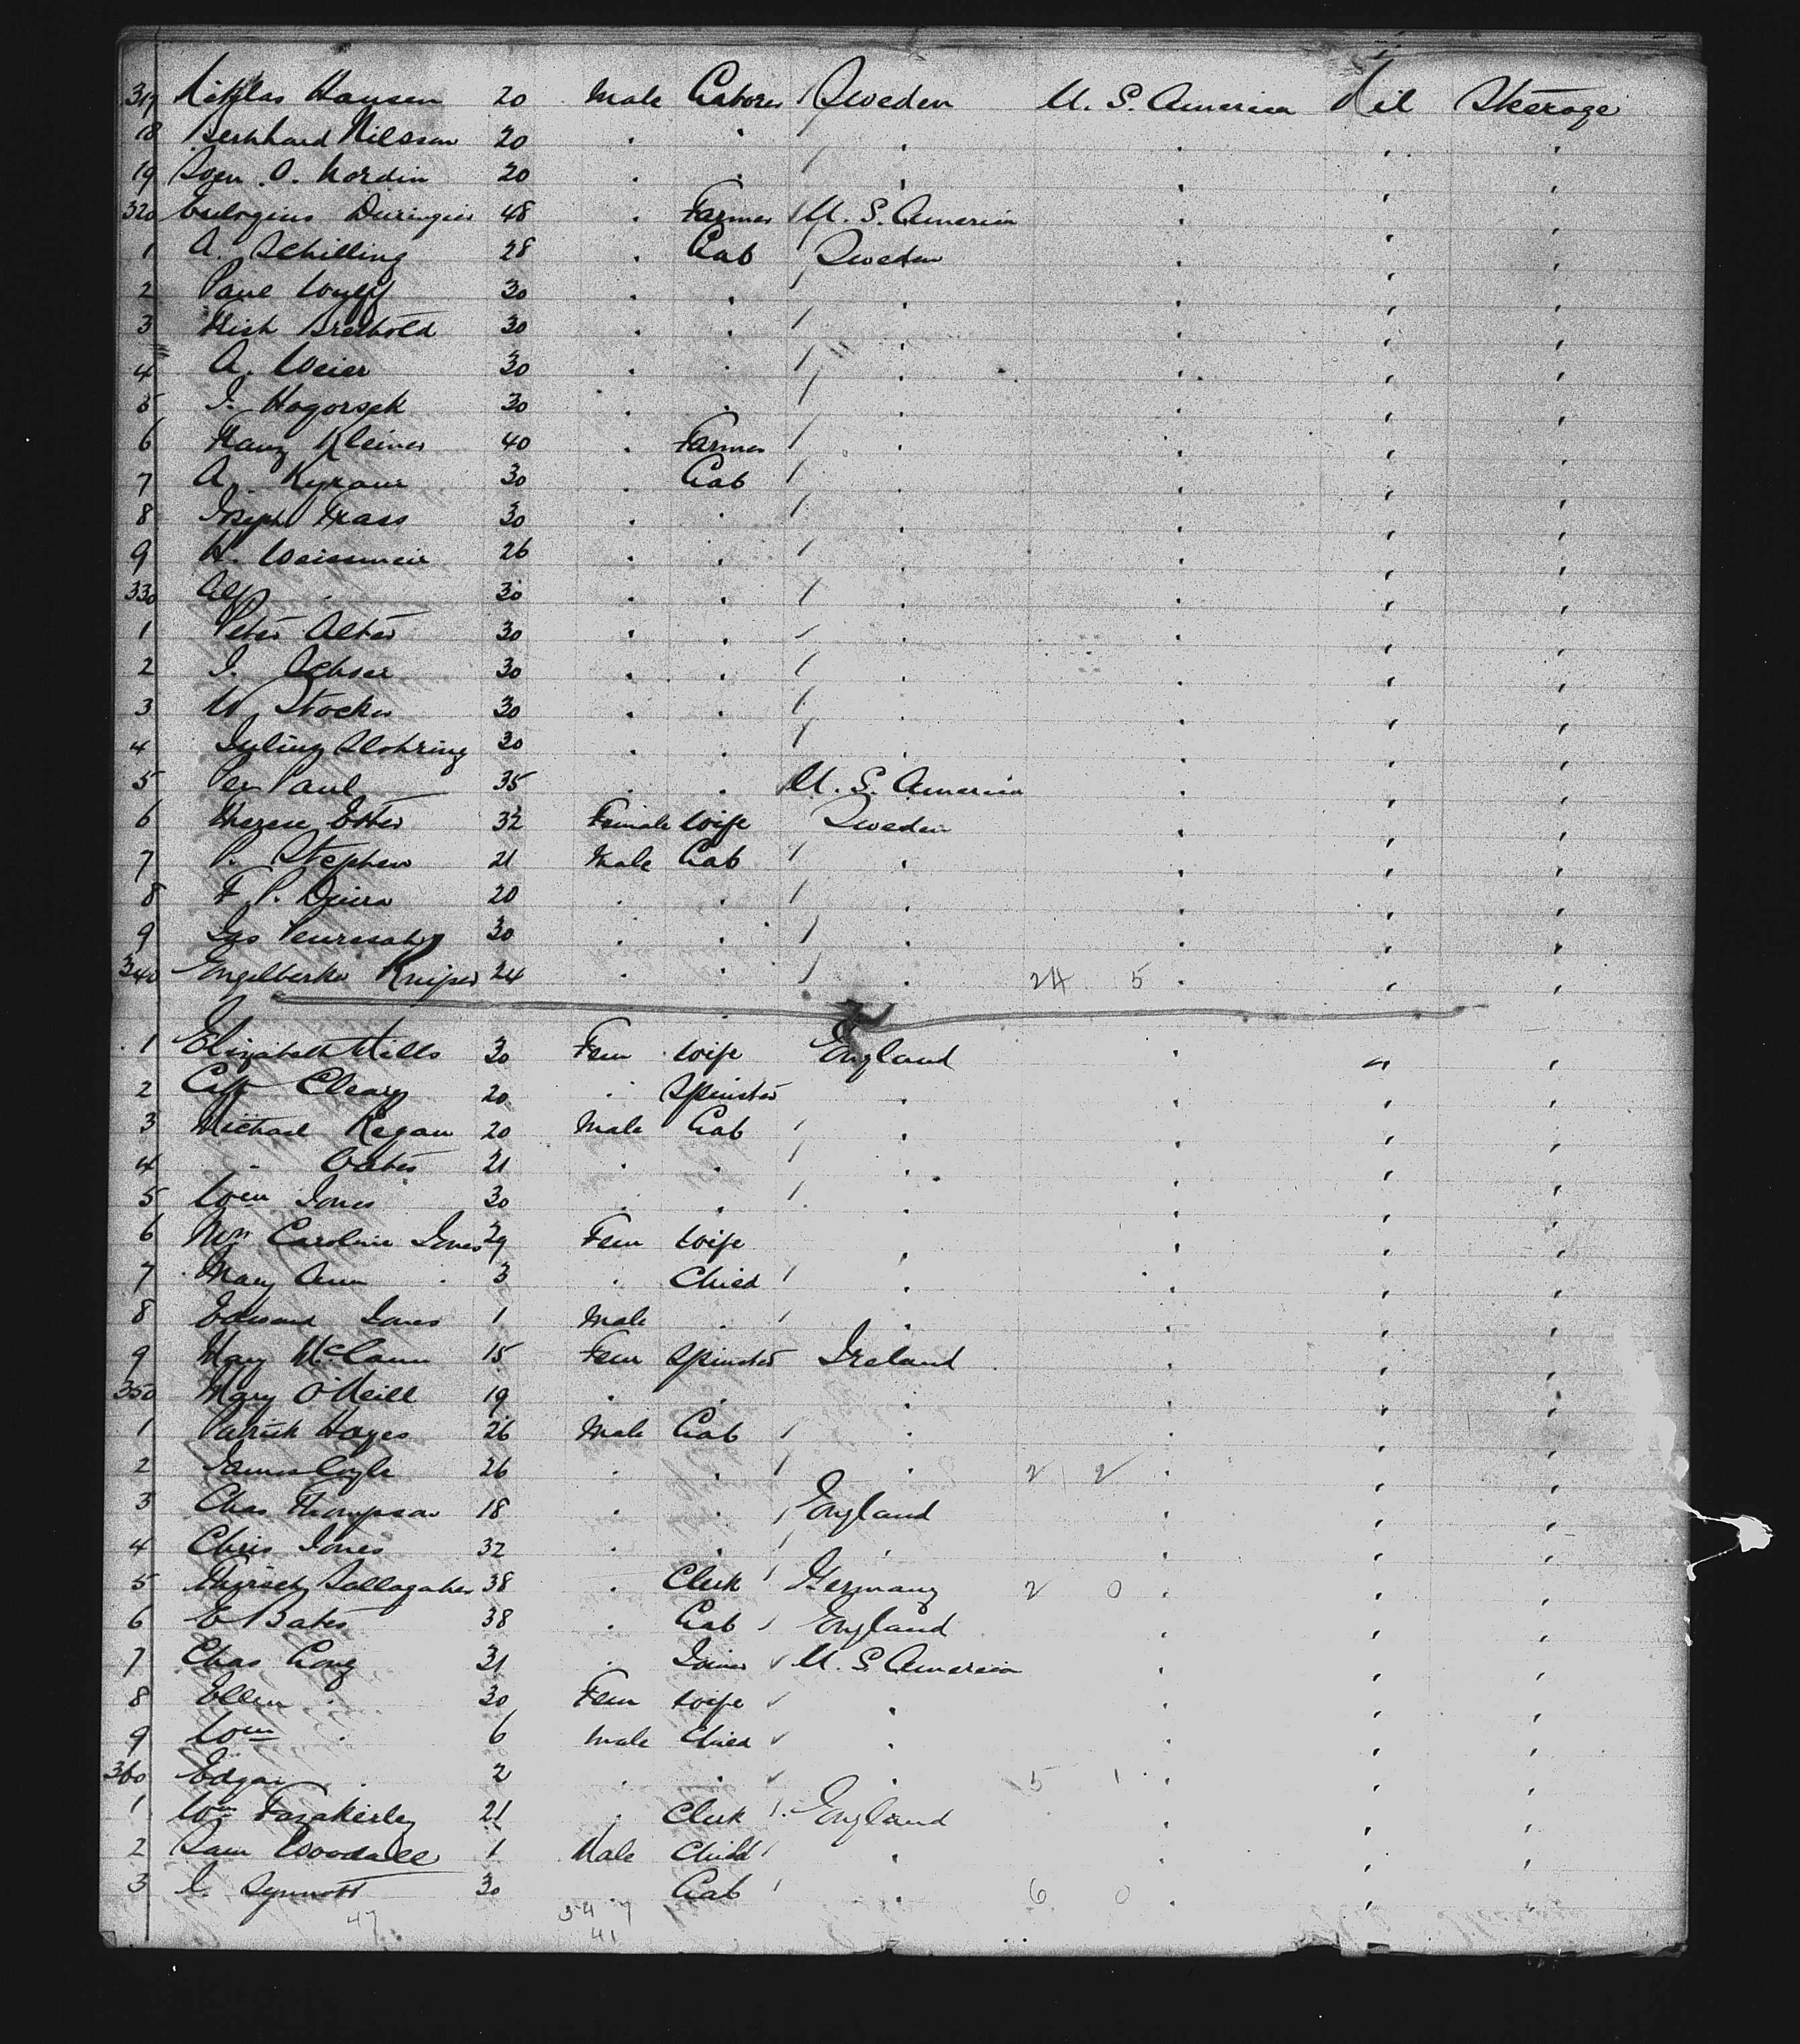 317 Niklas Hansen 20 Male Laborer Sweden U. S. America Nil Steerage
18 Bernhard Nilsson 20 . . . . . .
19 Sven O. Nordin 20 . . . . . .
320 Eulogius 48 . Farmer U. S. America . . .
1 A. Schilling 28 . Lab Sweden . . .
2 Paul Wulff 30 . . . . . .
3 30 . . . . . .
4 A. Weier 30 . . . . . .
5 J. Hogorsek 30 . . . . . .
6 Franz Kleiner 40 . Farmer . . . .
7 A. 30 . Lab . . . .
8 Joseph Frass 30 . . . . . .
9 26 . . . . . .
330 30 . . . . . .
1 Peter Alter 30 . . . . . .
2 J. 30 . . . . . .
3 W Stocker 30 . . . . . .
4 30 . . . . . .
5 Paul 35 . . U. S. America . . .
6 Therese 32 Female Wife Sweden . . .
7 P. Stephen 21 Male Lab . . . .
8 F. P. 20 . . . . . .
9 30 . . . . . .
340 Kniper 24 . . . 24 5 . . .
1 Elizabeth Mills 30 Fem Wife England . " .
2 Cath Cleary 20 . Spinster . . . .
3 Michael Regan 20 Male Lab . . . .
4 " 21 . . . . . .
5 Wm Jones 30 . . . . . .
6 Mrs Caroline Jones 29 Fem Wife . . . .
7 Mary Ann . 3 . Child . . . .
8 Edward Jones 1 Male . . . . .
9 Mary McCann 15 Fem Spinster Ireland . . .
350 Mary O'Neill 19 . . . . . .
1 Patrick Hayes 26 Male Lab . . . .
2 James Coyle 26 . . . 2 2 . . .
3 Chas Thompson 18 . . England . . .
4 Chris Jones 32 . . . . . .
5 38 . Clerk Germany 2 0 . . .
6 E Bates 38 . Lab England . . .
7 Chas Long 31 . Joiner U. S. America . . .
8 Ellen . 30 Fem Wife . . . .
9 Wm . 6 Male Child . . . .
360 Edgar . 2 . . . 5 1 . . .
1 Wm Fazakerley 21 . Clerk England . . .
2 Sam Woodall 1 Male Child . . . .
3 J. Synnott 30 . Lab . 6 0 . . .
47 34 7
41